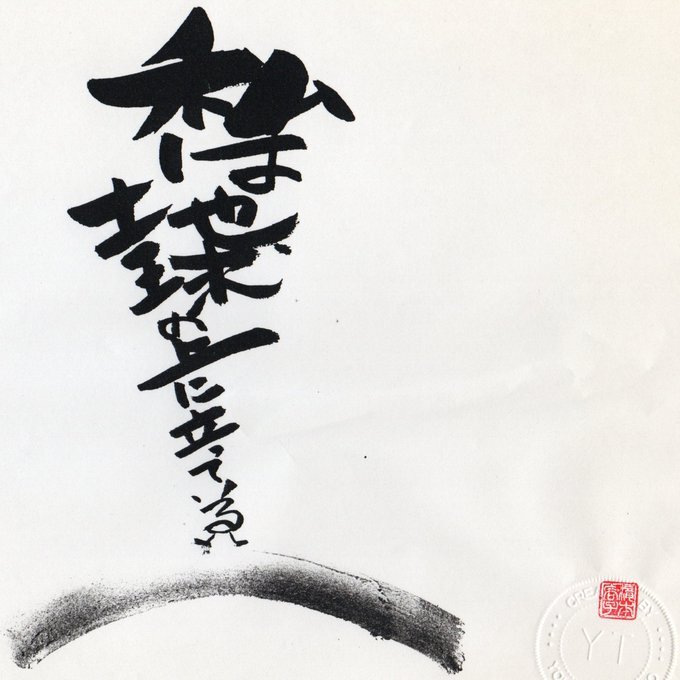 私は地球の上に立って
CREATED BY
YT